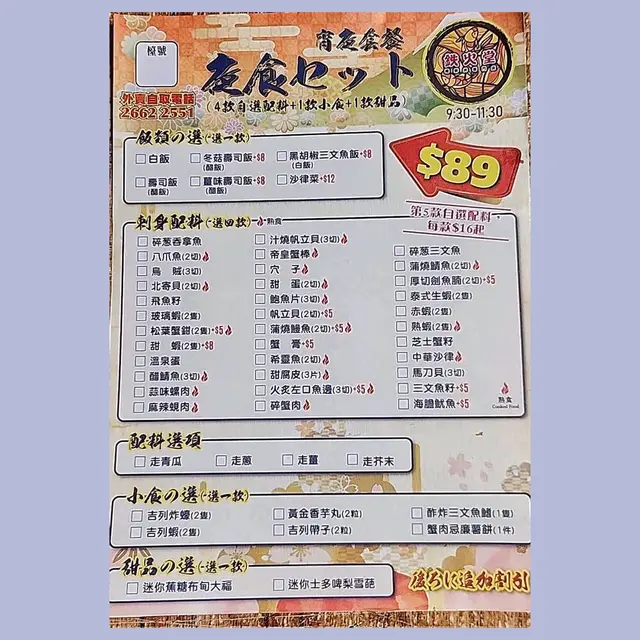 檯號
宵夜套餐
夜食セット
(4款自選配料+1款小食+1款甜品)
鉄火堂
外賣自取電話
2662 2551
9:30-11:30
飯類の選(-選一款)
白飯 冬菇壽司飯+$8 (醋飯) 黑胡椒三文魚飯+$8 (白飯)
壽司飯 (醋飯) 薑味壽司飯+$8 (醋飯) 沙律菜+$12
$89
第5款自選配料
每款$16起
刺身配料(-選四款) 熱食
碎葱吞拿魚
八爪魚(2切)
烏 賊(3切)
北寄貝(2切)
飛魚籽
玻璃蝦(2隻)
松葉蟹鉗(2隻)+$5
甜 蝦(2隻)+$8
溫泉蛋
醋鯖魚(3切)
蒜味螺肉
麻辣蜆肉
汁燒帆立貝(3切)
帝皇蟹棒
穴 子
甜 蛋(2切)
鮑魚片(3切)
帆立貝(2切)+$5
蒲燒鰻魚(2切)+$5
蟹 膏+$5
希靈魚(2切)
甜腐皮(3片)
火炙左口魚邊(3切)+$5
碎蟹肉
碎葱三文魚
蒲燒鯖魚(2切)
厚切劍魚腩(2切)+$5
泰式生蝦(2隻)
赤蝦(2隻)
熟蝦(2隻)
芝士蟹籽
中華沙律
馬刀貝(3切)
三文魚籽+$5
海膽魷魚+$5
熟食
Cooked Food
配料選項
走青瓜 走蔥 走薑 走芥末
小食の選(-選一款)
吉列炸蠔(2隻) 黃金香芋丸(2粒) 酢炸三文魚鰭(1隻)
吉列蝦(2隻) 吉列帶子(2粒) 蟹肉忌廉薯餅(1件)
甜品の選(-選一款)
迷你蕉糖布甸大福 迷你士多啤梨雪葩
後ろに追加割引